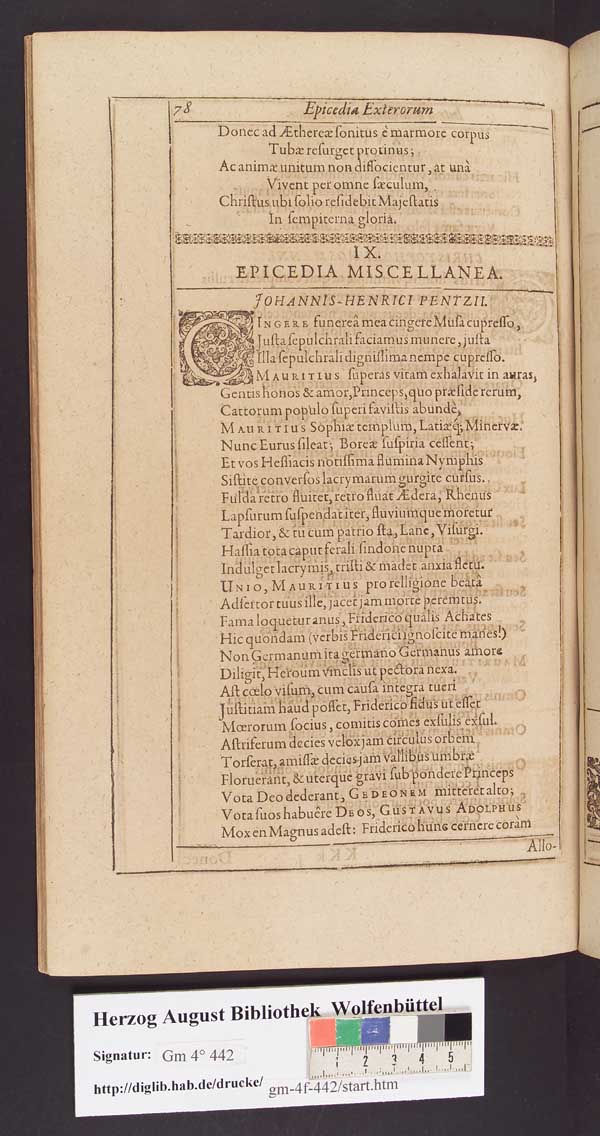 78 Epicedia Exterorum
Donec ad Æthereæ ſonitus è marmore corpus
Tubæ reſurget protinus;
Ac animæ unitum non diſſocientur, at unà
Vivent per omne ſæculum,
Chriſtus ubi ſolio reſidebit Majeſtatis
In ſempiterna gloria.
IX.
EPICEDIA MISCELLANEA.
JOHANNIS-HENRICI PENTZII.
CINGERE funereâ mea cingere Muſa cupreſſo,
Juſta ſepulchrali faciamus munere, juſta
Illa ſepulchrali digniſſima nempe cupreſſo.
MAURITIUS ſuperas vitam exhalavit in auras,
Gentis honos & amor, Princeps, quo præſide rerum,
Cattorum populo ſuperi faviſtis abundè,
MAURITIUS Sophiæ templum, Latiæq; Minervæ.
Nunc Eurus ſileat; Boreæ ſuſpiria ceſſent;
Et vos Heſſiacis notiſſima flumina Nymphis
Siſtite converſos lacrymarum gurgite curſus.
Fulda retro fluitet, retro fluat Ædera, Rhenus
Lapſurum ſuſpendat iter, fluviumque moretur
Tardior, & tu cum patrio ſta, Lane, Viſurgi.
Haſſia tota caput ferali ſindone nupta
Indulget lacrymis, triſti & madet anxia fletu.
UNIO, MAURITIUS pro relligione beatâ
Adſertor tuus ille, jacet jam morte peremtus.
Fama loquetur anus, Friderico qualis Achates
Hic quondam (verbis Friderici ignoſcite manes!)
Non Germanum ita germano Germanus amore
Diligit, Heroum vinclis ut pectora nexa.
Aſt cœlo viſum, cum cauſa integra tueri
Juſtitiam haud poſſet, Friderico fidus ut eſſet
Mœrorum ſocius, comitis comes exſulis exſul.
Aſtriferum decies velox jam circulus orbem
Torſerat, amiſſæ decies jam vallibus umbræ
Floruerant, & uterque gravi ſub pondere Princeps
Vota Deo dederant, GEDEONEM mitteret alto;
Vota ſuos habuêre DEOS, GUSTAVUS ADOLPHUS
Mox en Magnus adeſt: Friderico hunc cernere coràm
Allo-
Herzog August Bibliothek Wolfenbüttel
Signatur: Gm 4° 442
http://diglib.hab.de/drucke/ gm-4f-442/start.htm
1 2 3 4 5